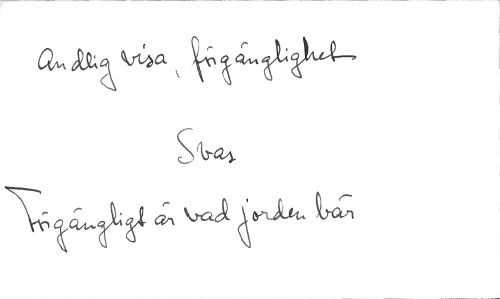 Andlig visa, förgänglighet
Svas
Förgängligt är vad jorden bär